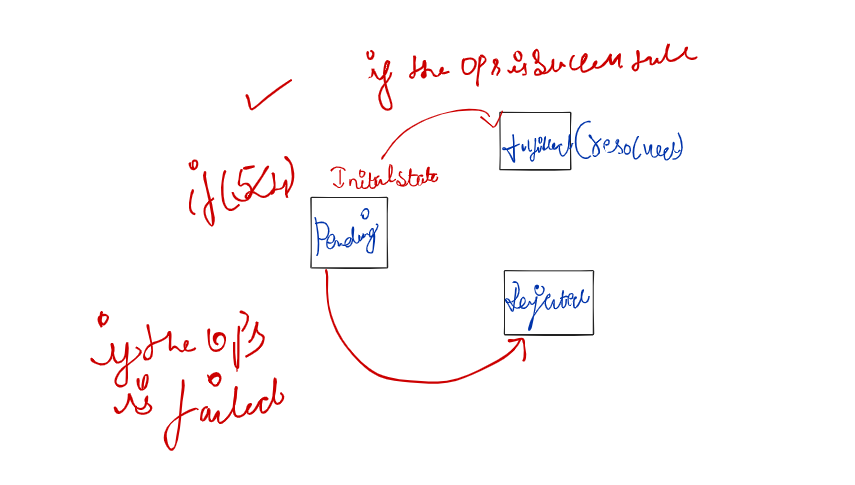 if the ops is successfull
fulfilled (resolved)
if(5<4)
Initial state
Pending
Rejected
if the op's
is failed